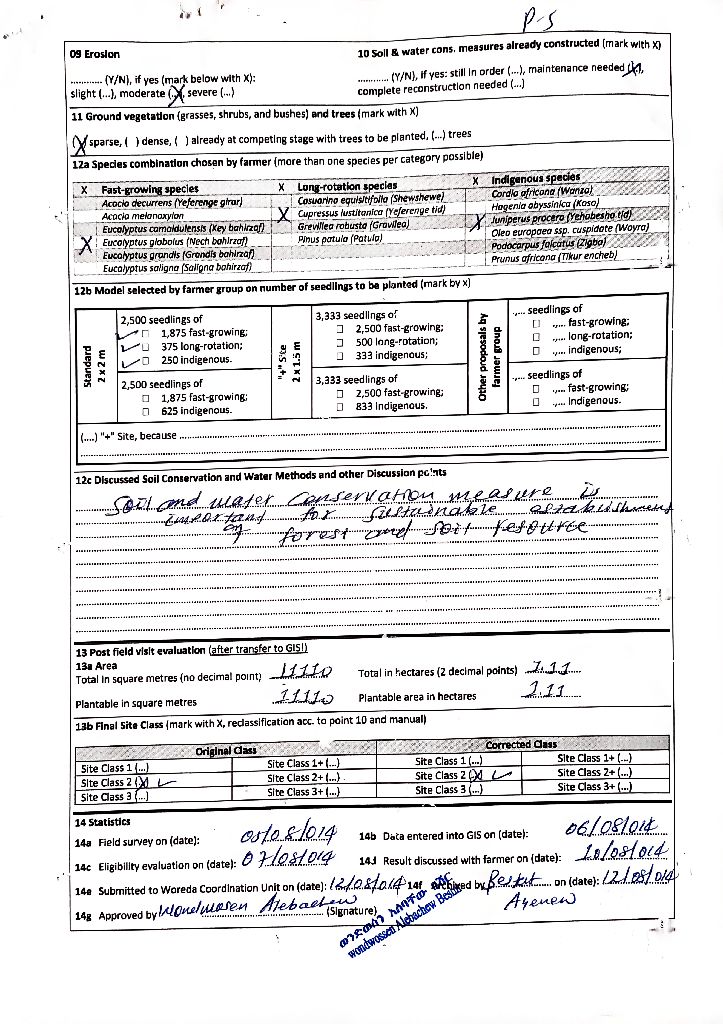 P-5
09 Erosion
............ (Y/N), if yes (mark below with X):
slight (...), moderate (X), severe (...)
10 Soil & water cons. measures already constructed (mark with X)
............ (Y/N), if yes: still in order (...), maintenance needed (X),
complete reconstruction needed (...)
11 Ground vegetation (grasses, shrubs, and bushes) and trees (mark with X)
(X) sparse, ( ) dense, ( ) already at competing stage with trees to be planted, (...) trees
12a Species combination chosen by farmer (more than one species per category possible)
X Fast-growing species
Acacia decurrens (Yeferenge girar)
Acacia melanoxylon
Eucalyptus camaldulensis (Key bahirzaf)
X Eucalyptus globolus (Nech bahirzaf)
Eucalyptus grandis (Grandis bahirzaf)
Eucalyptus saligna (Saligna bahirzaf)
X Long-rotation species
Casuarina equisitifolia (Shewshewe)
X Cupressus lustitanica (Yeferenge tid)
Grevillea robusta (Gravilea)
Pinus patula (Patula)
X Indigenous species
Cordia africana (Wanza)
Hagenia abyssinica (Koso)
X Juniperus procera (Yehabesha tid)
Oleo europaea ssp. cuspidate (Wayra)
Podocarpus falcatus (Zigba)
Prunus africana (Tikur encheb)
12b Model selected by farmer group on number of seedlings to be planted (mark by X)
Standard
2 x 2 m
2,500 seedlings of
✓ □ 1,875 fast-growing;
✓ □ 375 long-rotation;
✓ □ 250 indigenous.
2,500 seedlings of
□ 1,875 fast-growing;
□ 625 indigenous.
"+" Site
2 x 1.5 m
3,333 seedlings of
□ 2,500 fast-growing;
□ 500 long-rotation;
□ 333 indigenous;
3,333 seedlings of
□ 2,500 fast-growing;
□ 833 indigenous.
Other proposals by
farmer group
.,... seedlings of
□ .,... fast-growing;
□ .,... long-rotation;
□ .,... indigenous;
.,... seedlings of
□ .,... fast-growing;
□ .,... indigenous.
(....) "+" Site, because
12c Discussed Soil Conservation and Water Methods and other Discussion points
Soil and water conservation measure is
important for sustainable establishment
of forest and soil resource
13 Post field visit evaluation (after transfer to GIS!)
13a Area
Total in square metres (no decimal point) 11110 Total in hectares (2 decimal points) 1.11
Plantable in square metres 11110 Plantable area in hectares 1.11
13b Final Site Class (mark with X, reclassification acc. to point 10 and manual)
Original Class Corrected Class
Site Class 1 (...) Site Class 1+ (...) Site Class 1 (...) Site Class 1+ (...)
Site Class 2 (X) ✓ Site Class 2+ (...) Site Class 2 (X) ✓ Site Class 2+ (...)
Site Class 3 (...) Site Class 3+ (...) Site Class 3 (...) Site Class 3+ (...)
14 Statistics
14a Field survey on (date): 05/08/014 14b Data entered into GIS on (date): 06/08/014
14c Eligibility evaluation on (date): 07/08/014 14d Result discussed with farmer on (date): 10/08/014
14e Submitted to Woreda Coordination Unit on (date): 12/08/014 14f Archived by on (date): 12/08/014
Ayenew
14g Approved by Wondwosen Alebachew (Signature)
wondwossen Alebachew